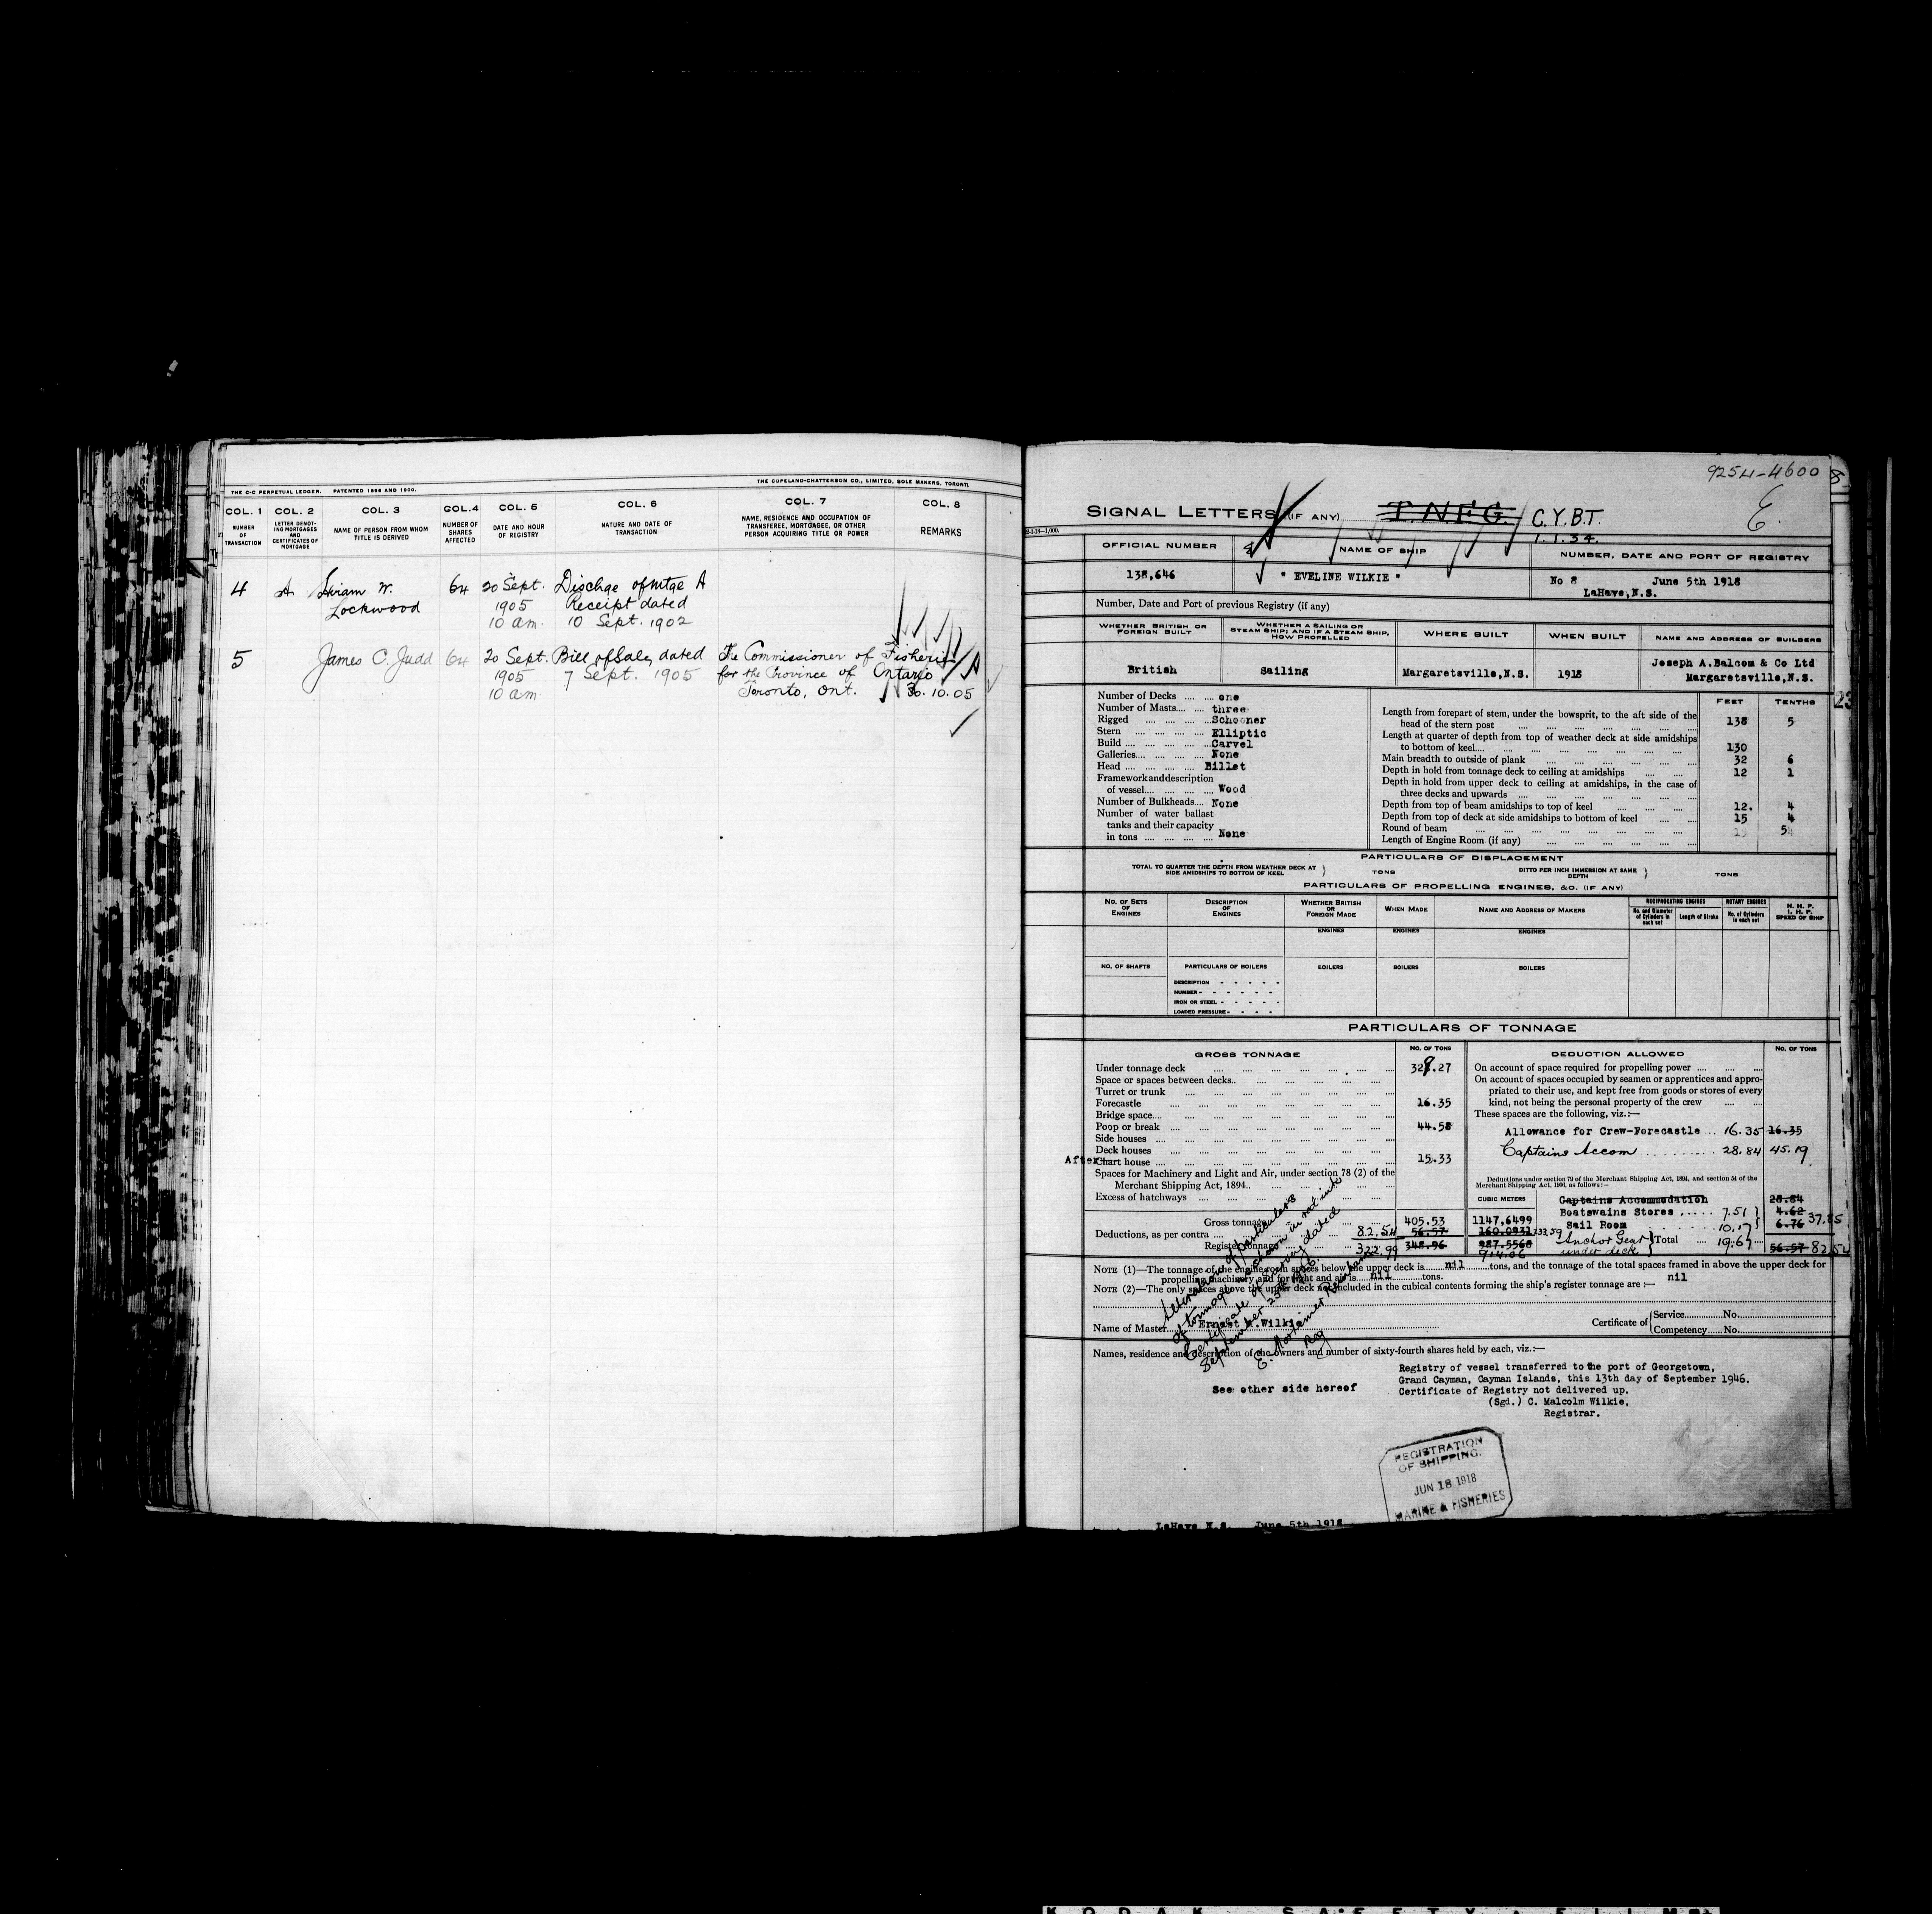 THE C-C PERPETUAL LEDGER. PATENTED 1898 AND 1900. THE COPELAND-CHATTERSON CO., LIMITED, SOLE MAKERS, TORONTO
COL. 1 COL. 2 COL. 3 COL. 4 COL. 5 COL. 6 COL. 7 COL. 8
NUMBER OF TRANSACTION
LETTER DENOTING MORTGAGES AND CERTIFICATES OF MORTGAGE
NAME OF PERSON FROM WHOM TITLE IS DERIVED
NUMBER OF SHARES AFFECTED
DATE AND HOUR OF REGISTRY
NATURE AND DATE OF TRANSACTION
NAME, RESIDENCE AND OCCUPATION OF TRANSFEREE, MORTGAGEE, OR OTHER PERSON ACQUIRING TITLE OR POWER
REMARKS
4 A Hiram W. 64 20 Sept. Dischge of mtge A
Lockwood 1905 Receipt dated
10 am. 10 Sept. 1902
5 James C. Judd 64 20 Sept. Bill of Sale, dated The Commissioner of Fisheries
1905 7 Sept. 1905 for the Province of Ontario
10 am Toronto, Ont. 30.10.05
9254-4600
8
E.
SIGNAL LETTERS (IF ANY) T.N.F.G. C.Y.B.T.
1.1.34.
OFFICIAL NUMBER NAME OF SHIP NUMBER, DATE AND PORT OF REGISTRY
138,646 " EVELINE WILKIE " No 8 June 5th 1918
LaHave,N.S.
Number, Date and Port of previous Registry (if any)
WHETHER BRITISH OR FOREIGN BUILT
WHETHER A SAILING OR STEAM SHIP; AND IF A STEAM SHIP, HOW PROPELLED
WHERE BUILT WHEN BUILT NAME AND ADDRESS OF BUILDERS
British Sailing Margaretsville,N.S. 1918 Joseph A.Balcom & Co Ltd
Margaretsville,N.S.
23
FEET TENTHS
Number of Decks one
Number of Masts three
Rigged Schooner
Stern Elliptic
Build Carvel
Galleries None
Head Billet
Framework and description
of vessel Wood
Number of Bulkheads None
Number of water ballast
tanks and their capacity
in tons None
Length from forepart of stem, under the bowsprit, to the aft side of the
head of the stern post 138 5
Length at quarter of depth from top of weather deck at side amidships
to bottom of keel 130
Main breadth to outside of plank 32 6
Depth in hold from tonnage deck to ceiling at amidships 12 1
Depth in hold from upper deck to ceiling at amidships, in the case of
three decks and upwards
Depth from top of beam amidships to top of keel 12. 4
Depth from top of deck at side amidships to bottom of keel 15 4
Round of beam
Length of Engine Room (if any)
PARTICULARS OF DISPLACEMENT
TOTAL TO QUARTER THE DEPTH FROM WEATHER DECK AT SIDE AMIDSHIPS TO BOTTOM OF KEEL } TONS DITTO PER INCH IMMERSION AT SAME DEPTH } TONS
PARTICULARS OF PROPELLING ENGINES, &C. (IF ANY)
NO. OF SETS OF ENGINES
DESCRIPTION OF ENGINES
WHETHER BRITISH OR FOREIGN MADE
WHEN MADE
NAME AND ADDRESS OF MAKERS
RECIPROCATING ENGINES ROTARY ENGINES
No. and Diameter of Cylinders in each set
Length of Stroke
No. of Cylinders in each set
N. H. P.
I. H. P.
SPEED OF SHIP
ENGINES ENGINES ENGINES
NO. OF SHAFTS PARTICULARS OF BOILERS BOILERS BOILERS BOILERS
DESCRIPTION
NUMBER
IRON OR STEEL
LOADED PRESSURE
PARTICULARS OF TONNAGE
GROSS TONNAGE NO. OF TONS
Under tonnage deck 329.27
Space or spaces between decks
Turret or trunk
Forecastle 16.35
Bridge space
Poop or break 44.58
Side houses
Deck houses
After Chart house 15.33
Spaces for Machinery and Light and Air, under section 78 (2) of the
Merchant Shipping Act, 1894
Excess of hatchways
CUBIC METERS
Gross tonnage 405.53 1147,6499
Deductions, as per contra 82.54 56.57 160.0931 233.59
Register tonnage 322.99 348.96 987.5568
914.06
DEDUCTION ALLOWED NO. OF TONS
On account of space required for propelling power
On account of spaces occupied by seamen or apprentices and appro-
priated to their use, and kept free from goods or stores of every
kind, not being the personal property of the crew
These spaces are the following, viz.:—
Allowance for Crew-Forecastle 16.35 16.35
Captains Accom 28.84 45.19
Deductions under section 79 of the Merchant Shipping Act, 1894, and section 54 of the
Merchant Shipping Act, 1906, as follows:—
Captains Accommodation 28.84
Boatswains Stores 7.51 4.62
Sail Room 10.17 6.76 37.35
Anchor Gear under deck } Total 19.67 56.57 82.54
Alteration of particulars
of tonnage as shown in red ink
Certificate of Survey dated
September 25th
E. Mortimer
Reg
NOTE (1)—The tonnage of the engine room spaces below the upper deck is nil tons, and the tonnage of the total spaces framed in above the upper deck for
propelling machinery and for light and air is nil tons. nil
NOTE (2)—The only spaces above the upper deck not included in the cubical contents forming the ship's register tonnage are :—
Name of Master Ernest Wilkie Certificate of { Service No.
Competency No.
Names, residence and description of the owners and number of sixty-fourth shares held by each, viz.:—
See other side hereof
Registry of vessel transferred to the port of Georgetown,
Grand Cayman, Cayman Islands, this 13th day of September 1946.
Certificate of Registry not delivered up.
(Sgd.) C. Malcolm Wilkie,
Registrar.
REGISTRATION
OF SHIPPING.
JUN 18 1918
MARINE & FISHERIES
LaHave N.S. June 5th 1918
KODAK SAFETY FILM